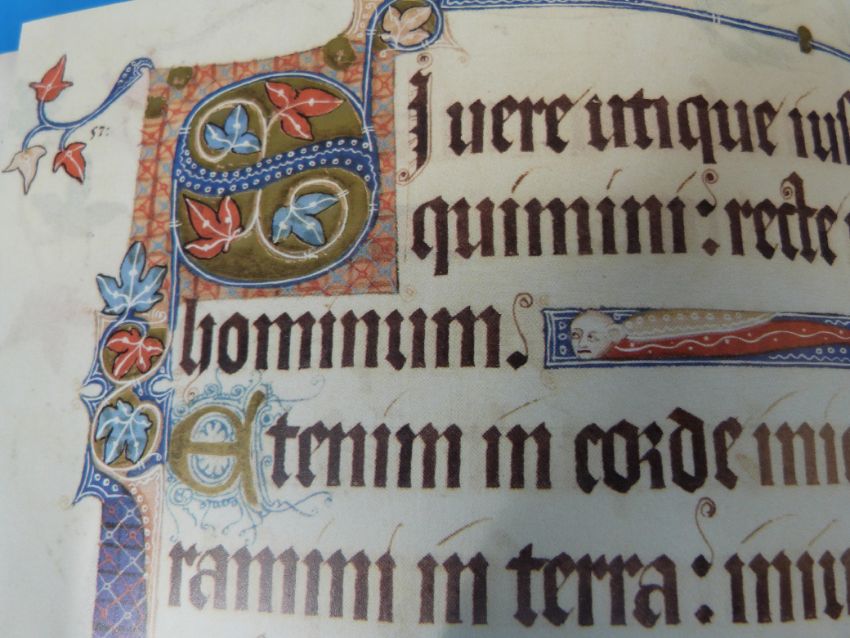 57:
SI uere utique ius
quimini: recte
hominum.
Etenim in corde ini
ramini in terra: